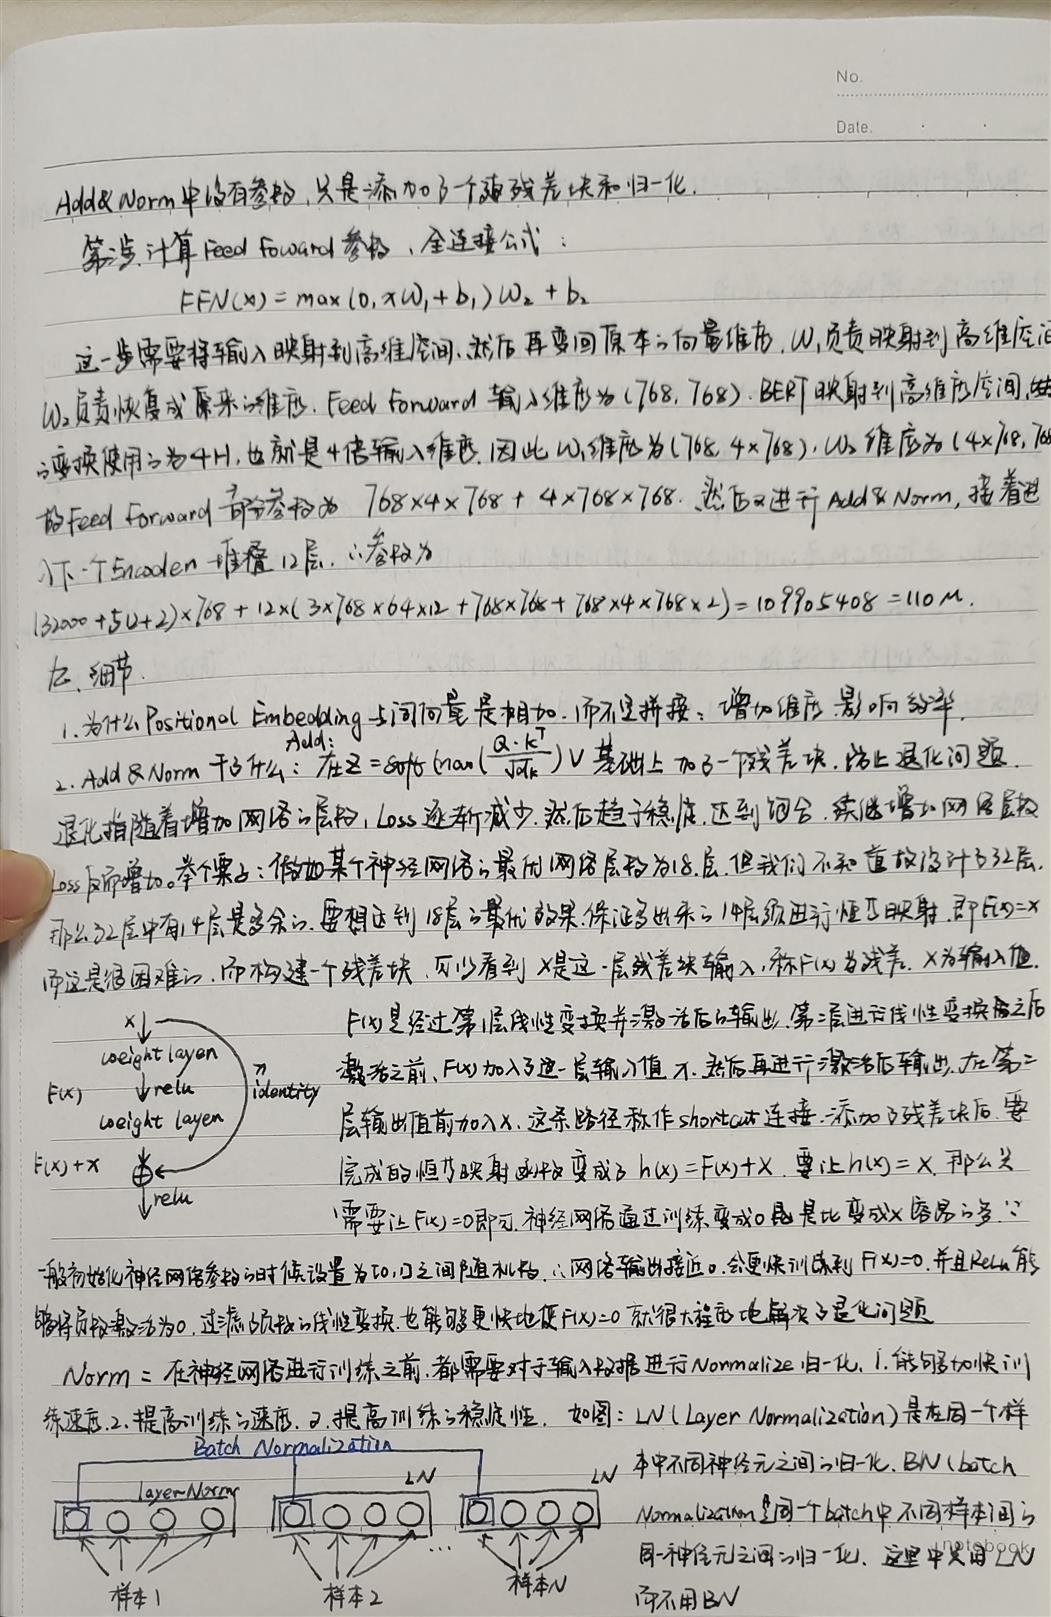 No.
Date.
Add&Norm中没有参数,只是添加了一个残差块和归一化.
第三步计算Feed Foward参数、全连接公式:
FFN(x) = max(0, xW₁+b₁)W₂+b₂
这一步需要将输入映射到高维空间、然后再变回原本的向量维度. W₁负责映射到高维空间
W₂负责恢复成原来的维度. Feed Forward 输入维度为(768, 768). BERT映射到高维度空间
的变换使用的为4H, 也就是4倍输入维度. 因此W₁维度为(768, 4×768), W₂维度为(4×768, 768
故Feed Forward部分参数为 768×4×768 + 4×768×768. 然后又进行Add&Norm, 接着进
入下一个Encoder 堆叠12层. ∴参数为
(32000+512+2)×768 + 12×(3×768×64×12 + 768×768 + 768×4×768×2) = 109905408 = 110M.
五、细节.
1.为什么Positional Embedding与词向量是相加、而不是拼接: 增加维度、影响效率.
Add:
2. Add&Norm干了什么: 在Z = softmax(Q·Kᵀ/√dk)V 基础上加了一个残差块, 防止退化问题.
退化指随着增加网络的层数, Loss逐渐减少, 然后趋于稳定, 达到饱合, 续继增加网络层数
Loss反而增加。举个栗子: 假如某个神经网络的最优网络层数为18层. 但我们不知道故设计了32层.
那么32层中有14层是多余的. 要想达到18层的最优效果, 保证多出来的14层须进行恒等映射. 即F(x)=x
而这是很困难的. 而构建一个残差块, 可以看到X是这一层残差块输入, 称F(x)为残差. X为输入值.
F(x)是经过第1层线性变换并激活后的输出. 第二层进行线性变换之后
激活之前, F(x)加入了这一层输入值x. 然后再进行激活后输出. 在第二
层输出值前加入x. 这条路径称作shortcut连接. 添加了残差块后. 要
完成的恒等映射函数变成了h(x)=F(x)+X. 要让h(x)=X. 那么只
需要让F(x)=0即可. 神经网络通过训练变成0是比变成X容易的多. ∵
x
weight layer
F(x)
relu
identity
weight layer
F(x)+x
relu
一般初始化神经网络参数的时候设置为[0,1]之间随机数. ∴网络输出接近0. 会更快训练到F(x)=0. 并且Relu能
够将负数激活为0, 过滤负数的线性变换. 也能够更快地使F(x)=0 就很大程度地解决了退化问题
Norm: 在神经网络进行训练之前, 都需要对于输入数据进行Normalize归一化, 1.能够加快训
练速度. 2.提高训练的速度. 3.提高训练的稳定性. 如图: LN(Layer Normalization)是在同一个样
本中不同神经元之间的归一化. BN(batch
Normalization是同一个batch中不同样本间的
同一神经元之间的归一化. 这里中只用LN
而不用BN
Batch Normalization
layerNorm
LN
LN
...
样本1
样本2
样本N
notebook